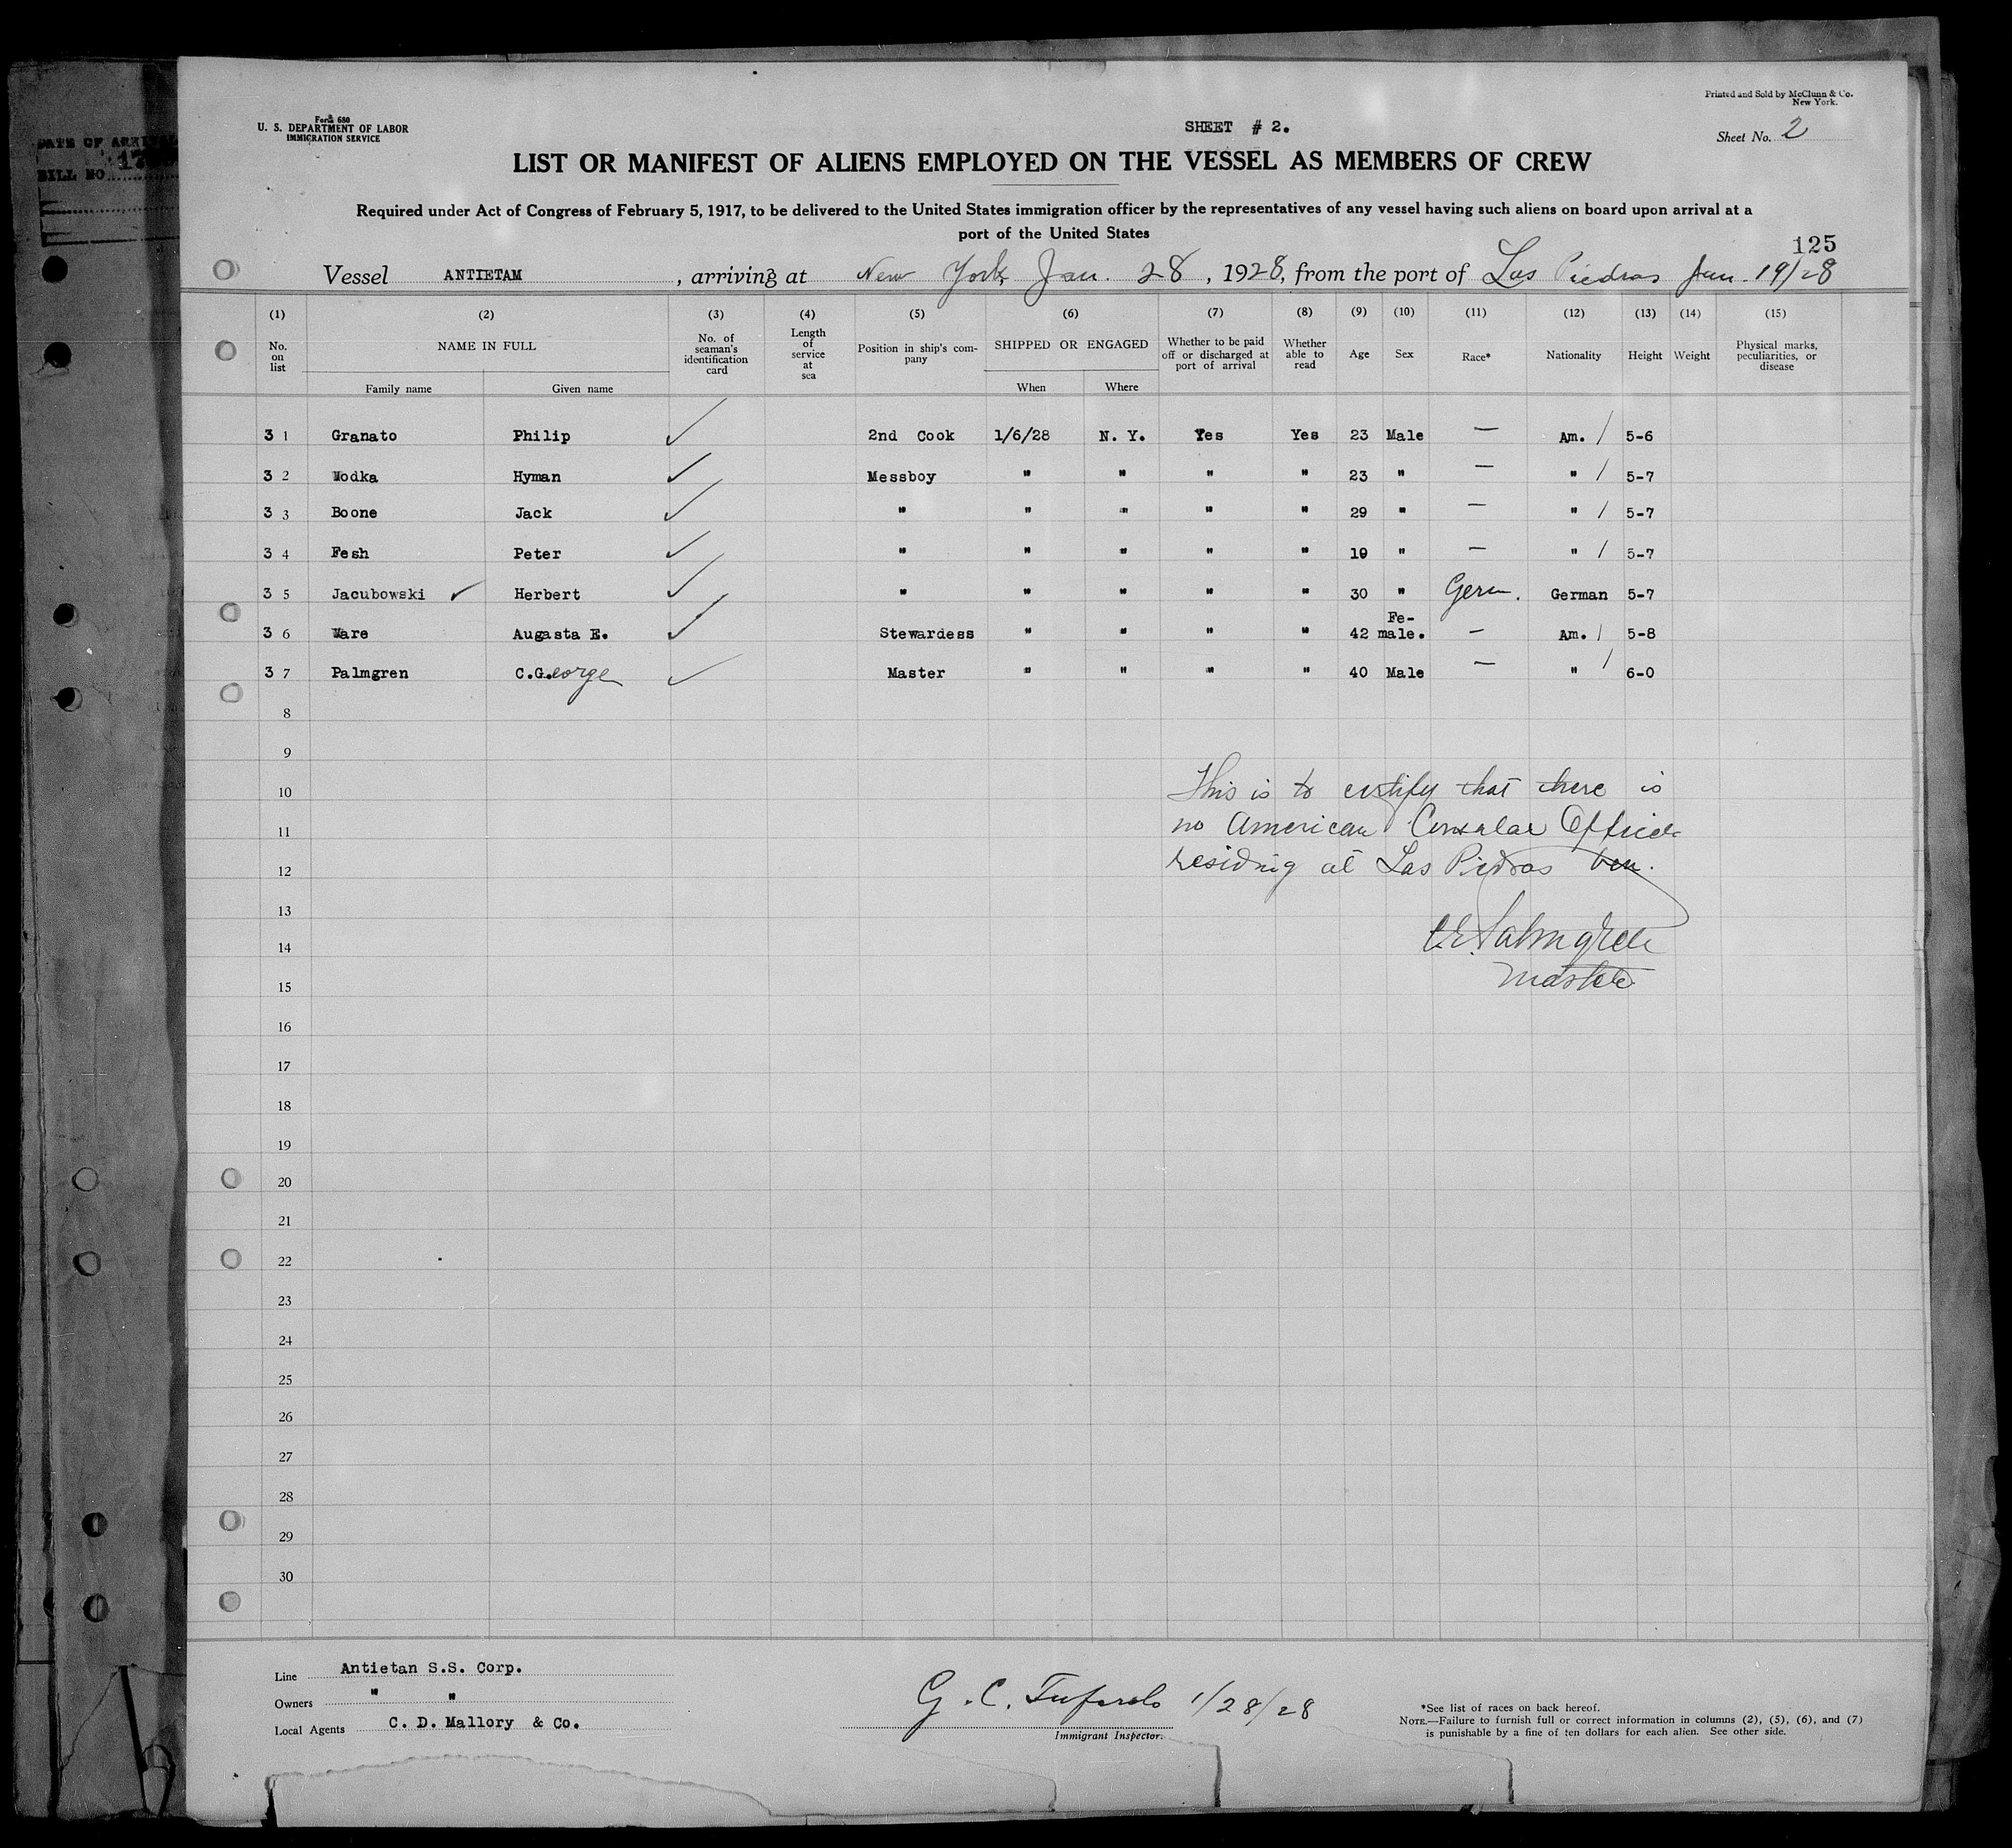 DATE OF
BILL NO.
Form 680
U. S. DEPARTMENT OF LABOR
IMMIGRATION SERVICE
SHEET # 2.
Printed and Sold by McClunn & Co.
New York.
Sheet No. 2
LIST OR MANIFEST OF ALIENS EMPLOYED ON THE VESSEL AS MEMBERS OF CREW
Required under Act of Congress of February 5, 1917, to be delivered to the United States immigration officer by the representatives of any vessel having such aliens on board upon arrival at a
port of the United States
125
Vessel ANTIETAM, arriving at New York, Jan. 28, 1928, from the port of Las Piedras Jan. 19/28
(1) (2) (3) (4) (5) (6) (7) (8) (9) (10) (11) (12) (13) (14) (15)
No. on list NAME IN FULL No. of seaman's identification card Length of service at sea Position in ship's company SHIPPED OR ENGAGED Whether to be paid off or discharged at port of arrival Whether able to read Age Sex Race* Nationality Height Weight Physical marks, peculiarities, or disease
Family name Given name When Where
3 1 Granato Philip ✓ 2nd Cook 1/6/28 N. Y. Yes Yes 23 Male — Am. / 5-6
3 2 Wodka Hyman ✓ Messboy " " " " 23 " — " / 5-7
3 3 Boone Jack ✓ " " " " " 29 " — " / 5-7
3 4 Fesh Peter ✓ " " " " " 19 " — " / 5-7
3 5 Jacubowski ✓ Herbert ✓ " " " " " 30 " Germ. German 5-7
3 6 Ware Augasta E. ✓ Stewardess " " " " 42 Fe-male. — Am. / 5-8
3 7 Palmgren C.George ✓ Master " " " " 40 Male — " / 6-0
8
9
10
11
12
13
14
15
16
17
18
19
20
21
22
23
24
25
26
27
28
29
30
This is to certify that there is
no American Consular Officer
residing at Las Piedras Ven.
C.G. Palmgren
Master
Line Antietan S.S. Corp.
Owners " "
Local Agents C. D. Mallory & Co.
G. C. Tufarolo 1/28/28
Immigrant Inspector.
*See list of races on back hereof.
NOTE.—Failure to furnish full or correct information in columns (2), (5), (6), and (7)
is punishable by a fine of ten dollars for each alien. See other side.